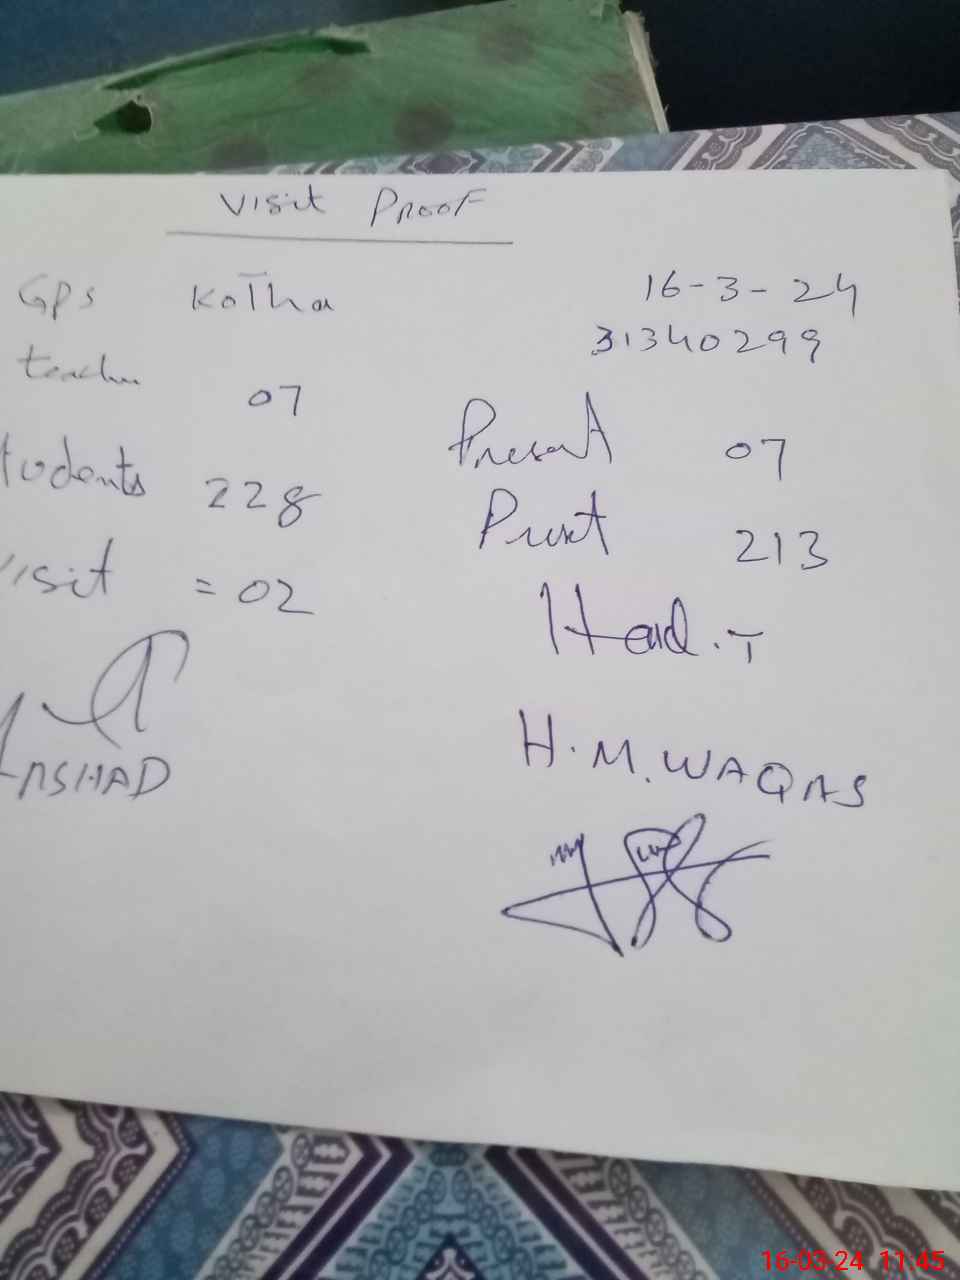 Visit Proof
GPS Kotha 16-3-24
31340299
teacher 07 Present 07
tudents 228 Present 213
isit = 02 Head.T
ARSHAD H.M.WAQAS
16-03-24 11:45